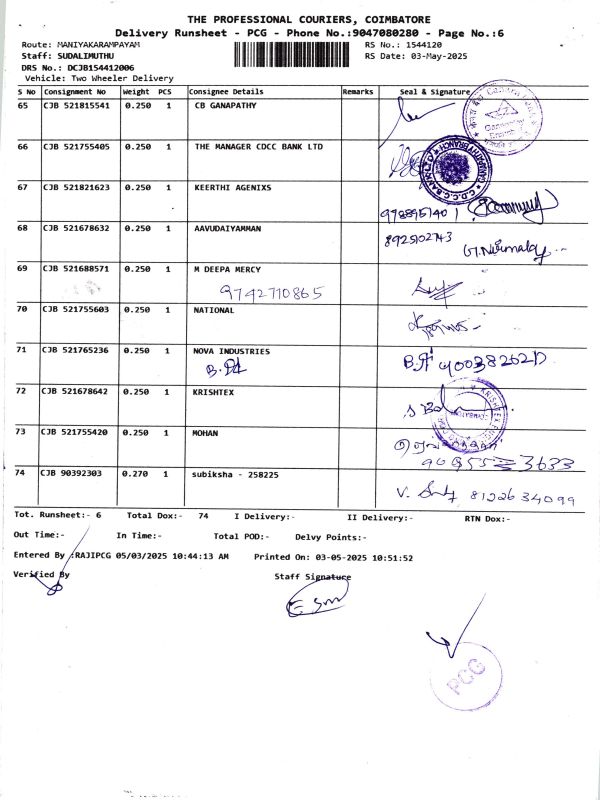 THE PROFESSIONAL COURIERS, COIMBATORE
Delivery Runsheet - PCG - Phone No.:9047080280 - Page No.:6
Route: MANIYAKARAMPAYAM RS No.: 1544120
Staff: SUDALIMUTHU RS Date: 03-May-2025
DRS No.: DCJB154412006
Vehicle: Two Wheeler Delivery
S No Consignment No Weight PCS Consignee Details Remarks Seal & Signature
65 CJB 521815541 0.250 1 CB GANAPATHY
66 CJB 521755405 0.250 1 THE MANAGER CDCC BANK LTD
67 CJB 521821623 0.250 1 KEERTHI AGENIXS
9788957401
68 CJB 521678632 0.250 1 AAVUDAIYAMMAN 8925102743
G.Nirmala
69 CJB 521688571 0.250 1 M DEEPA MERCY
9742710865
70 CJB 521755603 0.250 1 NATIONAL
71 CJB 521765236 0.250 1 NOVA INDUSTRIES
72 CJB 521678642 0.250 1 KRISHTEX
73 CJB 521755420 0.250 1 MOHAN
74 CJB 90392303 0.270 1 subiksha - 258225
V. 8122634099
Tot. Runsheet:- 6 Total Dox:- 74 I Delivery:- II Delivery:- RTN Dox:-
Out Time:- In Time:- Total POD:- Delvy Points:-
Entered By :RAJIPCG 05/03/2025 10:44:13 AM Printed On: 03-05-2025 10:51:52
Verified By Staff Signature
PCG